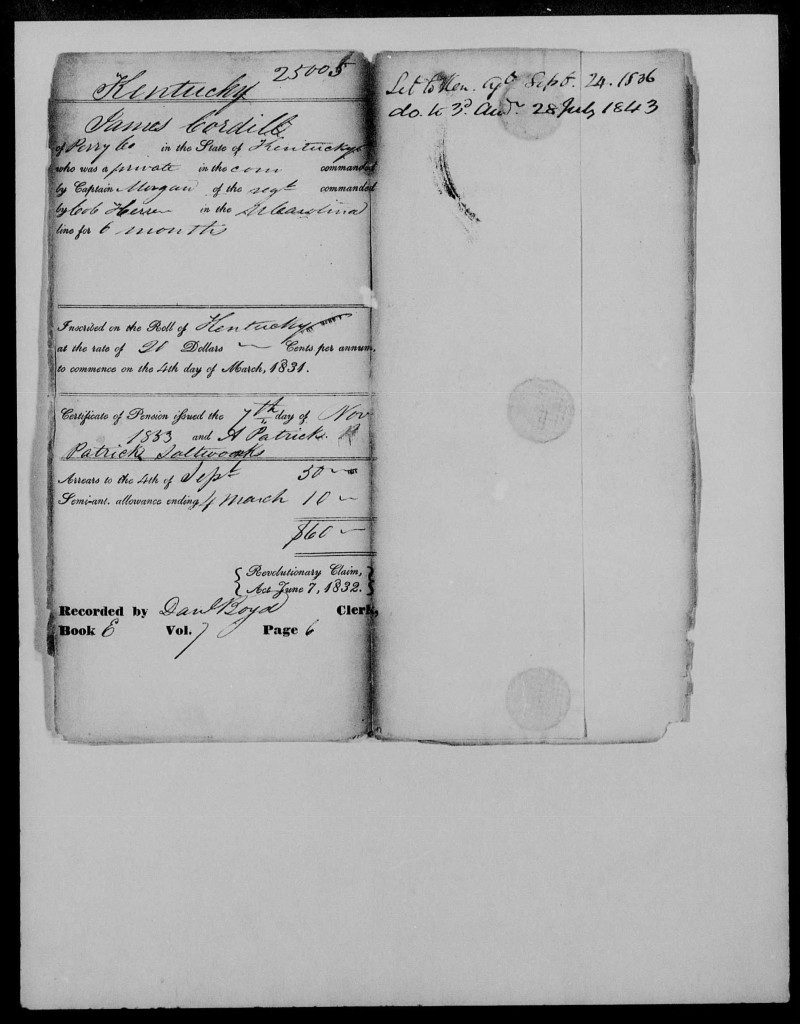 25005
Kentucky
James Cordill
of Perry Co in the State of Kentucky
who was a private in the com commanded
by Captain Morgan of the regt commanded
by Col in the N Carolina
line for 6 months
Inscribed on the Roll of Kentucky
at the rate of 20 Dollars — Cents per annum,
to commence on the 4th day of March, 1831.
Certificate of Pension issued the 7th day of Nov
1833 and A Patrick
Patricks Saltworks
Arrears to the 4th of Sept 50 —
Semi-anl. allowance ending 4 March 10 —
$60 —
Revolutionary Claim,
Act June 7, 1832.
Recorded by Danl Boyd Clerk,
Book E Vol. 7 Page 6
Let to Ken. agt Sept. 24. 1836
do. to 3d. Aud. 28 July 1843